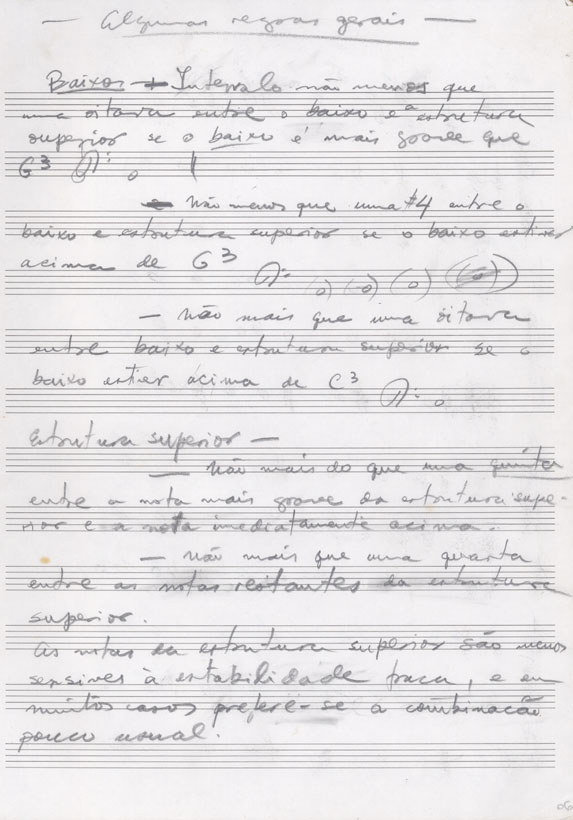 — Algumas regras gerais —
Baixos — Intervalo não menos que
uma oitava entre o baixo e a estrutura
superior se o baixo é mais grave que
G3
— Não menos que uma #4 entre o
baixo e estrutura superior se o baixo estiver
acima de G3
— Não mais que uma oitava
entre baixo e estrutura superior se o
baixo estier acima de C3
Estrutura superior —
— Não mais do que uma quinta
entre a nota mais grave da estrutura supe-
rior e a nota imediatamente acima.
— Não mais que uma quarta
entre as notas restantes da estrutura
superior.
As notas da estrutura superior são menos
sensives à estabilidade fraca, e em
muitos casos prefere-se a combinação
pouco usual.